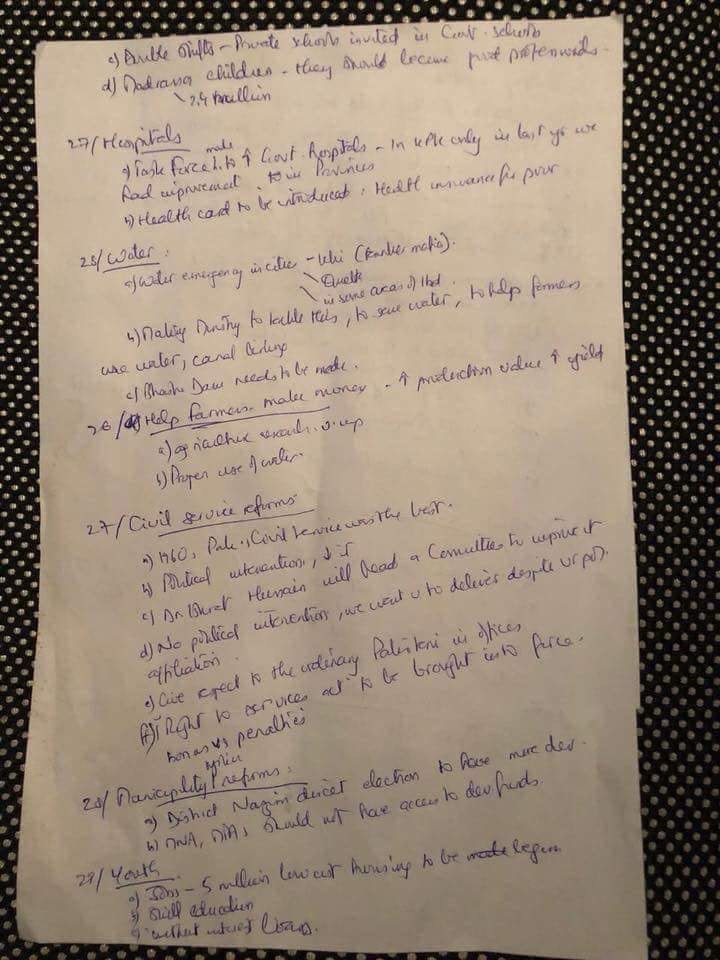 c) Double Shifts - Private schools invited in Govt. schools
d) Madrassa children - they should become
2.4 million
27/ Hospitals
a) Task Force made to ↑ Govt. Hospitals - In KPK only in last yrs we
had improvement in Provinces
b) Health card to be introduced. Health insurance for poor
25/ Water:
a) Water emergency in cities - Khi (tanker mafia).
Quetta
in some areas of
b) Making Ministry to tackle this, to save water, to help farmers
use water, canal lining
c) Bhasha Dam needs to be made.
26/ Help farmers make money - ↑ production value ↑ yield
a) agriculture
b) Proper use of water.
27/ Civil service reforms
a) 1960s Pak. Civil Service was the best.
b) Political intervention, ↓ it
c) Dr. Ishrat Hussain will head a Committee to improve it
d) No political intervention, we want u to deliver despite ur pol.
affiliation.
e) Give respect to the ordinary Pakistani in offices
f) Right to services act to be brought into force.
Bonas vs penalties
28/ Municipility reforms:
a) District Nazim direct election to have more dev.
b) MNA, MPAs should not have access to dev funds.
29/ Youth
a) Jobs - 5 million low cost housing to be made begun
b) Skill education
c) without interest loans.